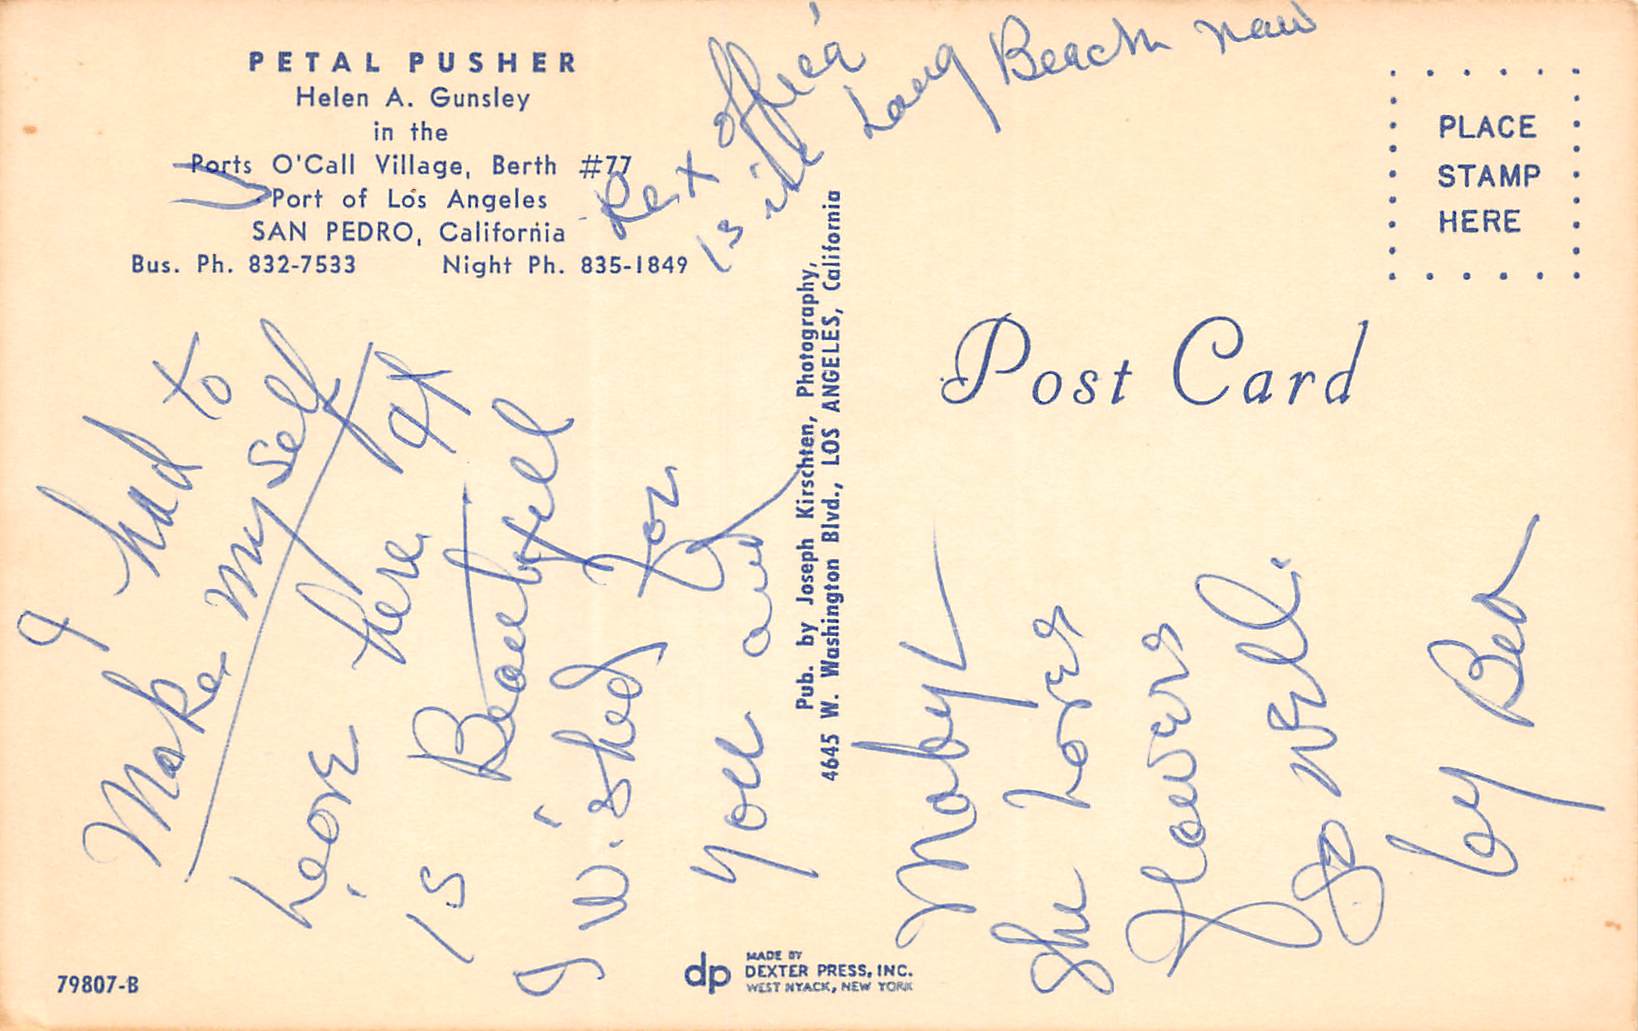 PETAL PUSHER
Helen A. Gunsley
in the
Ports O'Call Village, Berth #77
Port of Los Angeles
SAN PEDRO, California
Bus. Ph. 832-7533 Night Ph. 835-1849
Rex office
is in Long Beach now
PLACE
STAMP
HERE
Post Card
Pub. by Joseph Kirschten, Photography,
4645 W. Washington Blvd., LOS ANGELES, California
I had to
Make myself
here at
is Beautyfull
I wished for
you and
Mabyl
She Loves
flowers
So Well.
by Bea
79807-B
dp
MADE BY
DEXTER PRESS, INC.
WEST NYACK, NEW YORK